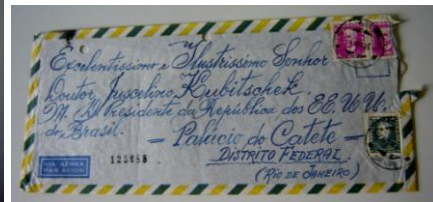 Excelentíssimo e Ilustríssimo Senhor
Doutor Juscelino Kubitschek.
M. D. Presidente da República dos EE. UU.
do Brasil.
— Palácio do Catete —
DISTRITO FEDERAL.
(RIO DE JANEIRO)
VIA AÉREA
PAR AVION